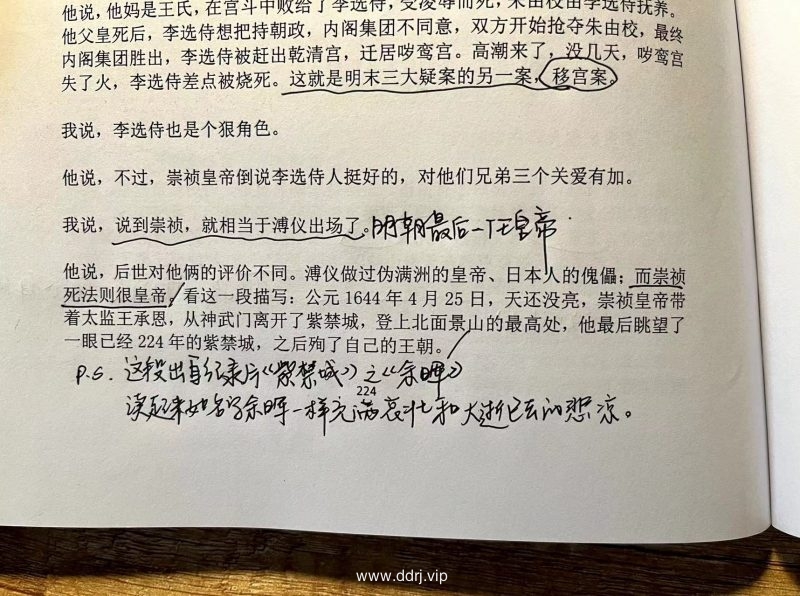 他说，他妈是王氏，在宫斗中败给了李选侍，受凌辱而死，朱由校由李选侍抚养。
他父皇死后，李选侍想把持朝政，内阁集团不同意，双方开始抢夺朱由校，最终
内阁集团胜出，李选侍被赶出乾清宫，迁居哕鸾宫。高潮来了，没几天，哕鸾宫
失了火，李选侍差点被烧死。这就是明末三大疑案的另一案，移宫案。
我说，李选侍也是个狠角色。
他说，不过，崇祯皇帝倒说李选侍人挺好的，对他们兄弟三个关爱有加。
我说，说到崇祯，就相当于溥仪出场了。明朝最后一个皇帝
他说，后世对他俩的评价不同。溥仪做过伪满洲的皇帝、日本人的傀儡；而崇祯
死法则很皇帝。看这一段描写：公元 1644 年 4 月 25 日，天还没亮，崇祯皇帝带
着太监王承恩，从神武门离开了紫禁城，登上北面景山的最高处，他最后眺望了
一眼已经 224 年的紫禁城，之后殉了自己的王朝。
P.S. 这段出自纪录片《紫禁城》之《余晖》
读起来如同余晖一样充满哀壮和大逝已去的悲凉。
224
www.ddrj.vip